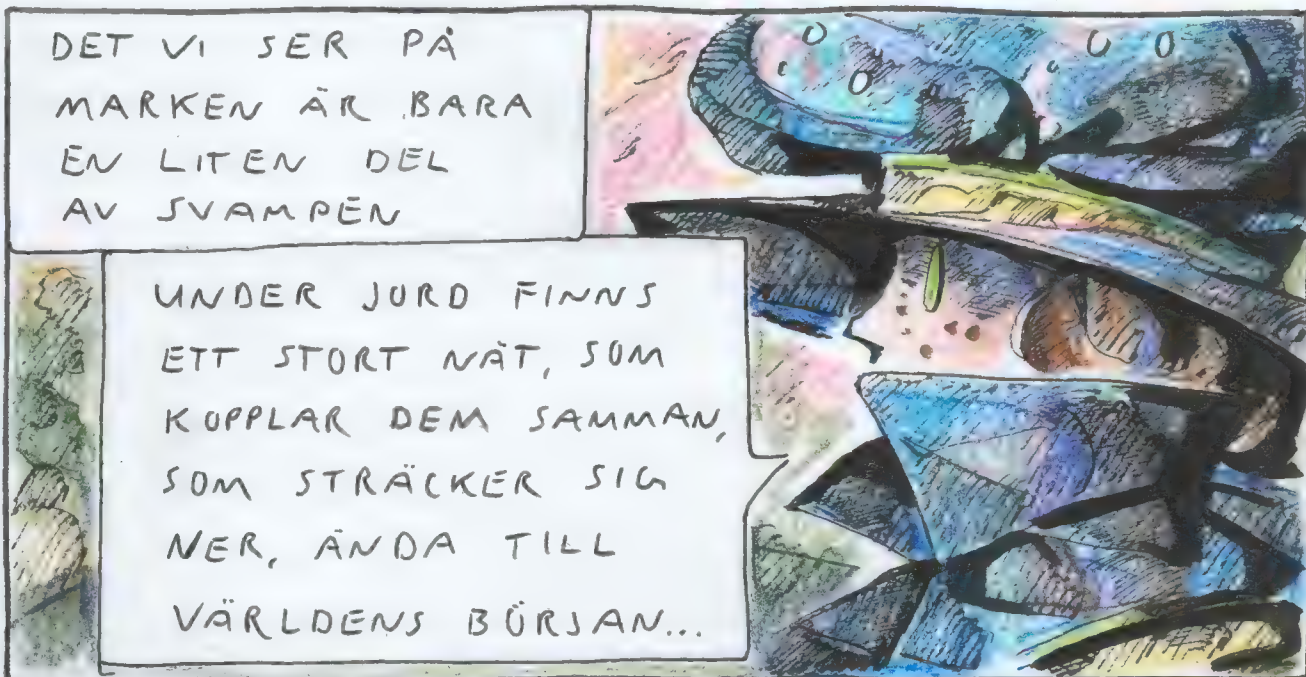 DET VI SER PÅ
MARKEN ÄR BARA
EN LITEN DEL
AV SVAMPEN
UNDER JORD FINNS
ETT STORT NÄT, SOM
KOPPLAR DEM SAMMAN,
SOM STRÄCKER SIG
NER, ÄNDA TILL
VÄRLDENS BÖRJAN...